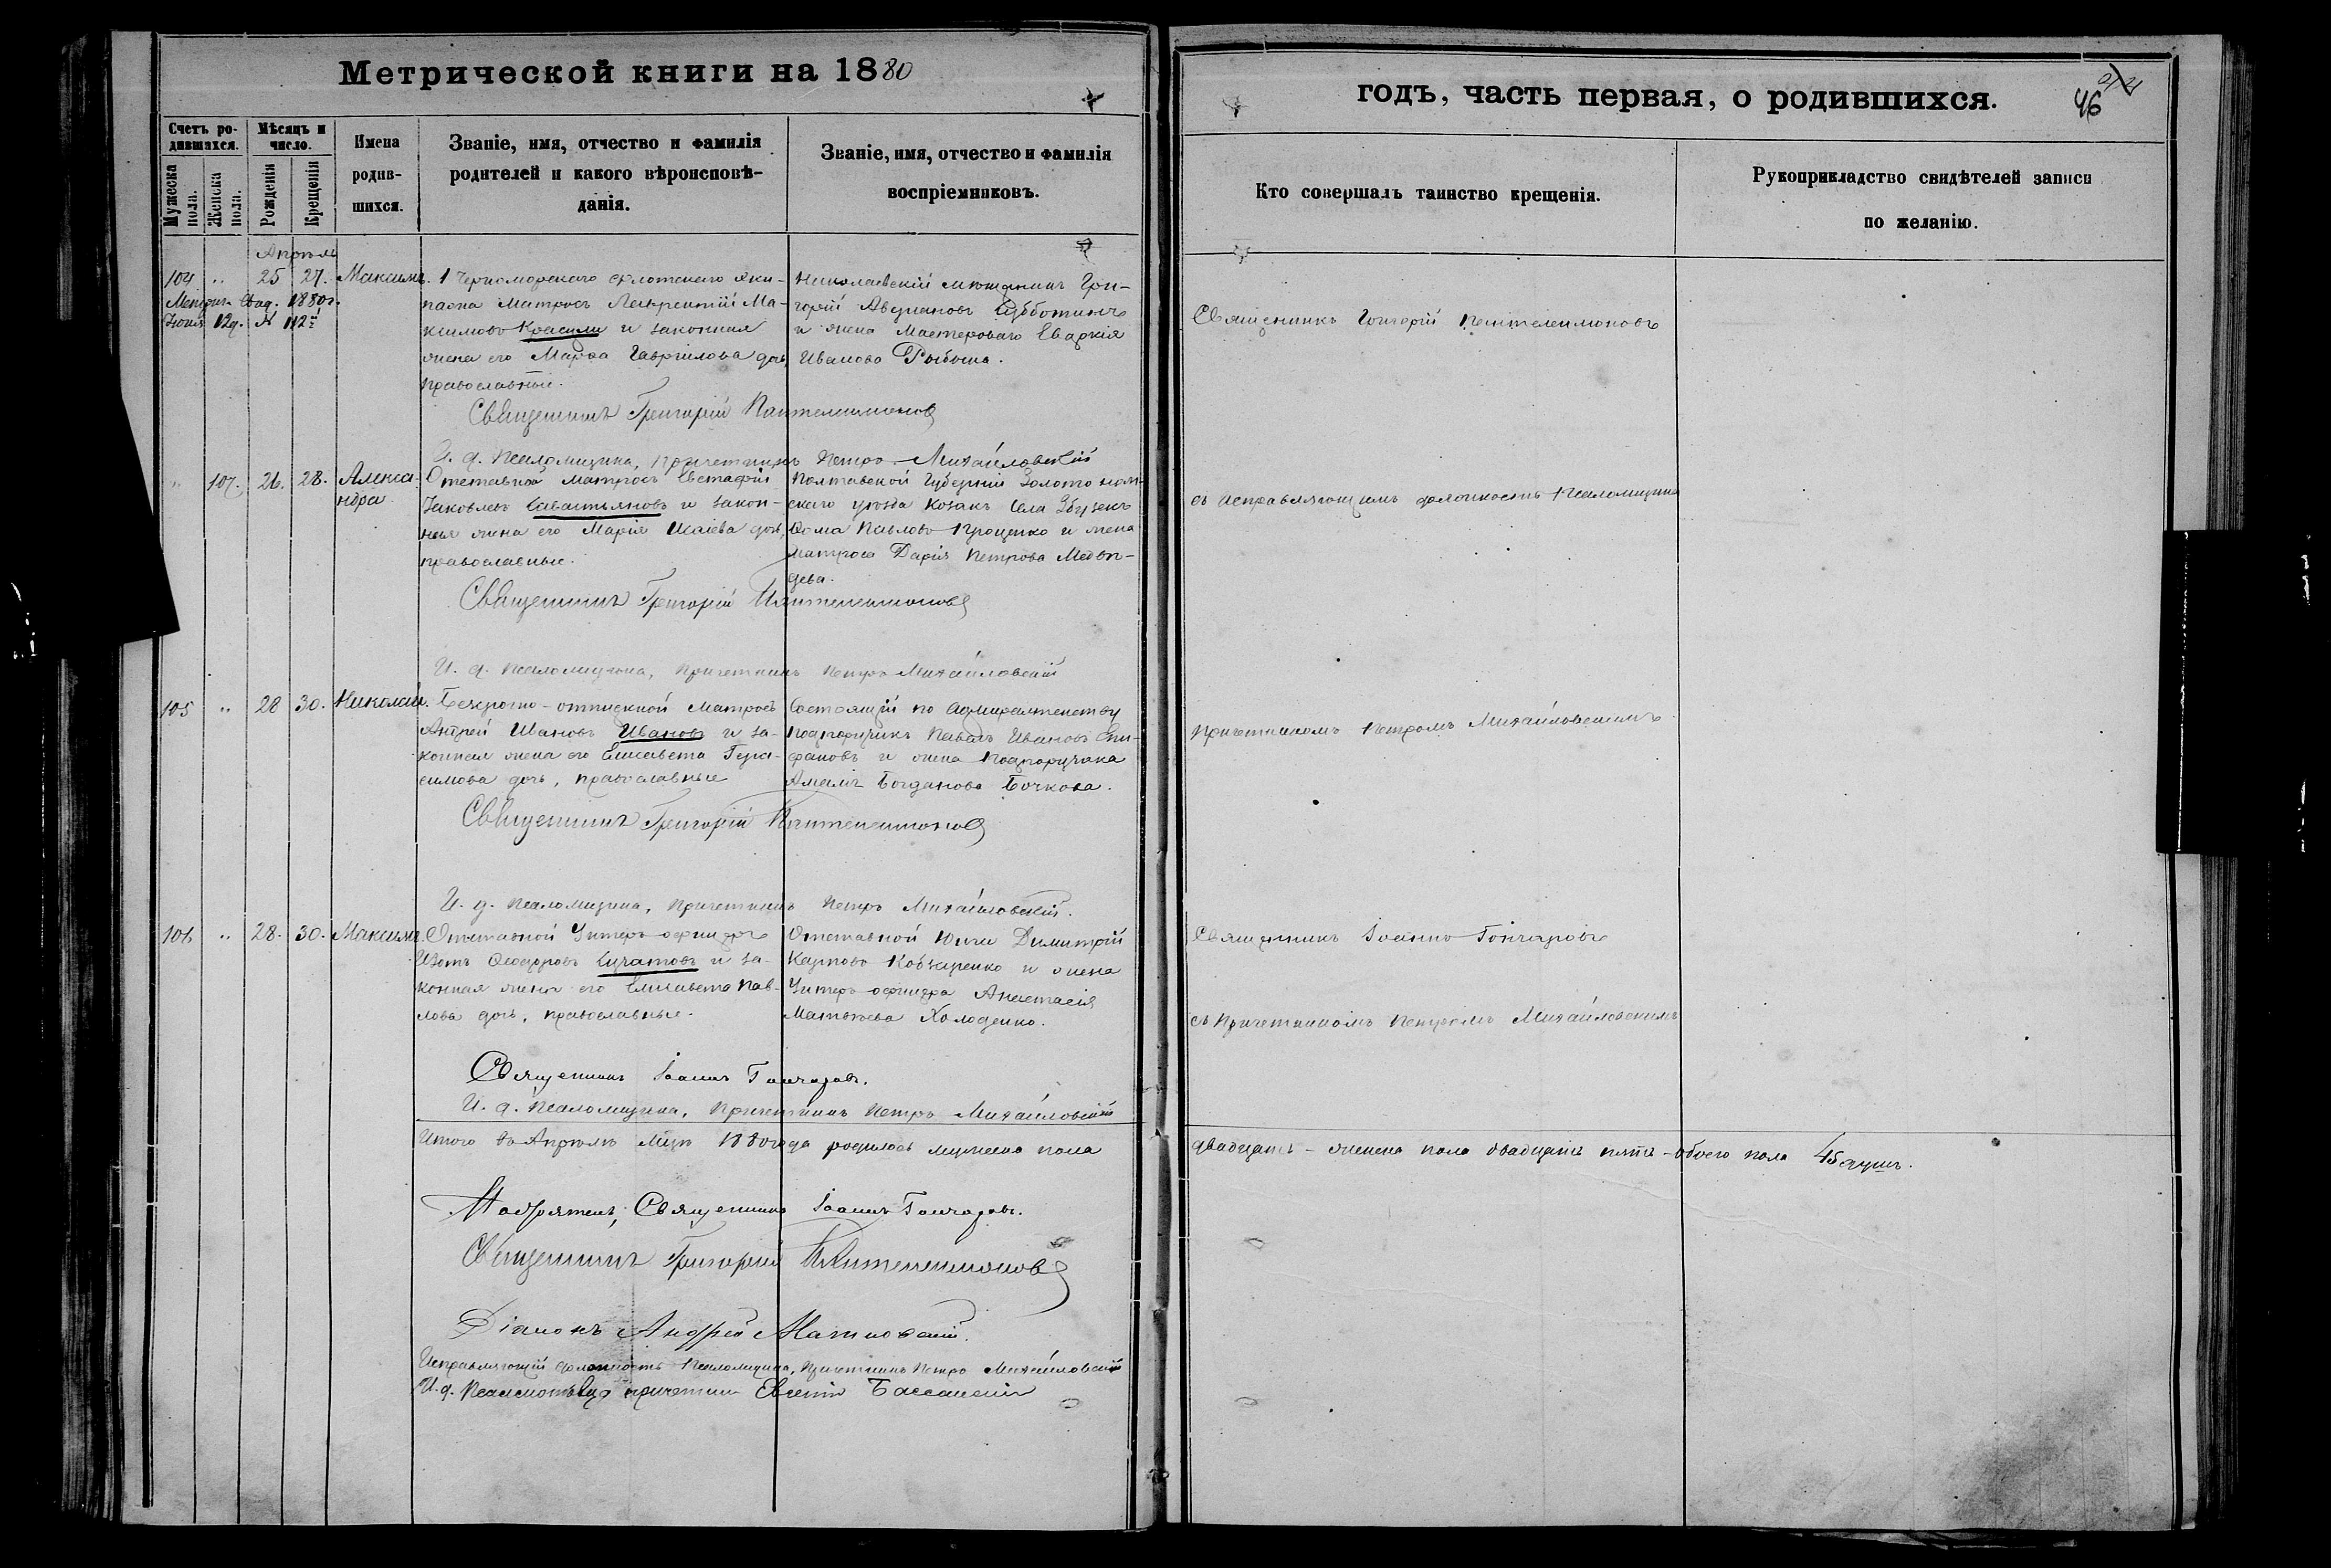 Метрической книги на 1880
годъ, часть первая, о родившихся.
46
Счетъ ро-
дившихся.
Мѣсяцъ и
число.
Имена
родив-
шихся.
Званіе, имя, отчество и фамилія
родителей и какого вѣроисповѣ-
данія.
Званіе, имя, отчество и фамилія
воспріемниковъ.
Мужеска
пола.
Женска
пола.
Рожденія
Крещенія
Кто совершалъ таинство крещенія.
Рукоприкладство свидѣтелей записи
по желанію.
Апрѣль
104 " 25 27. Максимъ.
Метрич. Свид. 1880г.
Іюня 12д. № 112й
1 Черноморскаго флотскаго эки-
пажа Матросъ Лаврентій Ма-
ксимовъ и законная
жена его Марѳа Гаврилова дочь,
православные.
Николаевскій мѣщанинъ Гри-
горій Субботинъ
и жена Мастероваго
Иванова
Священникъ Григорій Пантелеимоновъ
Священникъ Григорій Пантелеимоновъ
И. д. Псаломщика, Причетникъ Петръ Михайловскій
" 107. 26. 28. Алекса-
ндра
Отставной Матросъ Евстафій
Яковлевъ Савастьяновъ и закон-
ная жена его Марія Исаіева дочь,
православные.
Полтавской Губерніи Золотонош-
скаго уѣзда Козакъ Села
Ѳома Павловъ Проценко и жена
Матроса Дарія Петрова Медвѣ-
дева.
съ исправляющимъ должность Псаломщика
Священникъ Григорій Пантелеимоновъ
И. д. Псаломщика, Причетникъ Петръ Михайловскій
105 " 28 30. Николай.
Безсрочно-отпускной Матросъ
Андрей Ивановъ Ивановъ и за-
конная жена его Елисавета Гера-
симова дочь, православные
Состоящій по Адмиралтейству
Подпоручикъ Павелъ Ивановъ Епи-
фановъ и жена Подпоручика
Амалія Богданова Бочкова.
Причетникомъ Петромъ Михайловскимъ
Священникъ Григорій Пантелеимоновъ
И. д. Псаломщика, Причетникъ Петръ Михайловскій.
106 " 28. 30. Максимъ.
Отставной Унтеръ-офицеръ
Изотъ Ѳеодоровъ и за-
конная жена его Елисавета Пав-
лова дочь, православные.
Отставной Юнга Димитрій
Карповъ и жена
Унтеръ-офицера Анастасія
Матвѣева Холоденко.
Священникъ Іоаннъ Гончаровъ
съ Причетникомъ Петромъ Михайловскимъ
Священникъ Іоаннъ Гончаровъ.
И. д. Псаломщика, Причетникъ Петръ Михайловскій
Итого въ Апрѣлѣ мцѣ 1880 года родилось мужеска пола
двадцать - женска пола двадцать пять - обоего пола 45 душъ.
Настоятель, Священникъ Іоаннъ Гончаровъ.
Священникъ Григорій Пантелеимоновъ
Діаконъ Андрей
Исправляющій должность Псаломщика, Причетникъ Петръ Михайловскій
И. д. Псаломщика причетникъ Евгеній